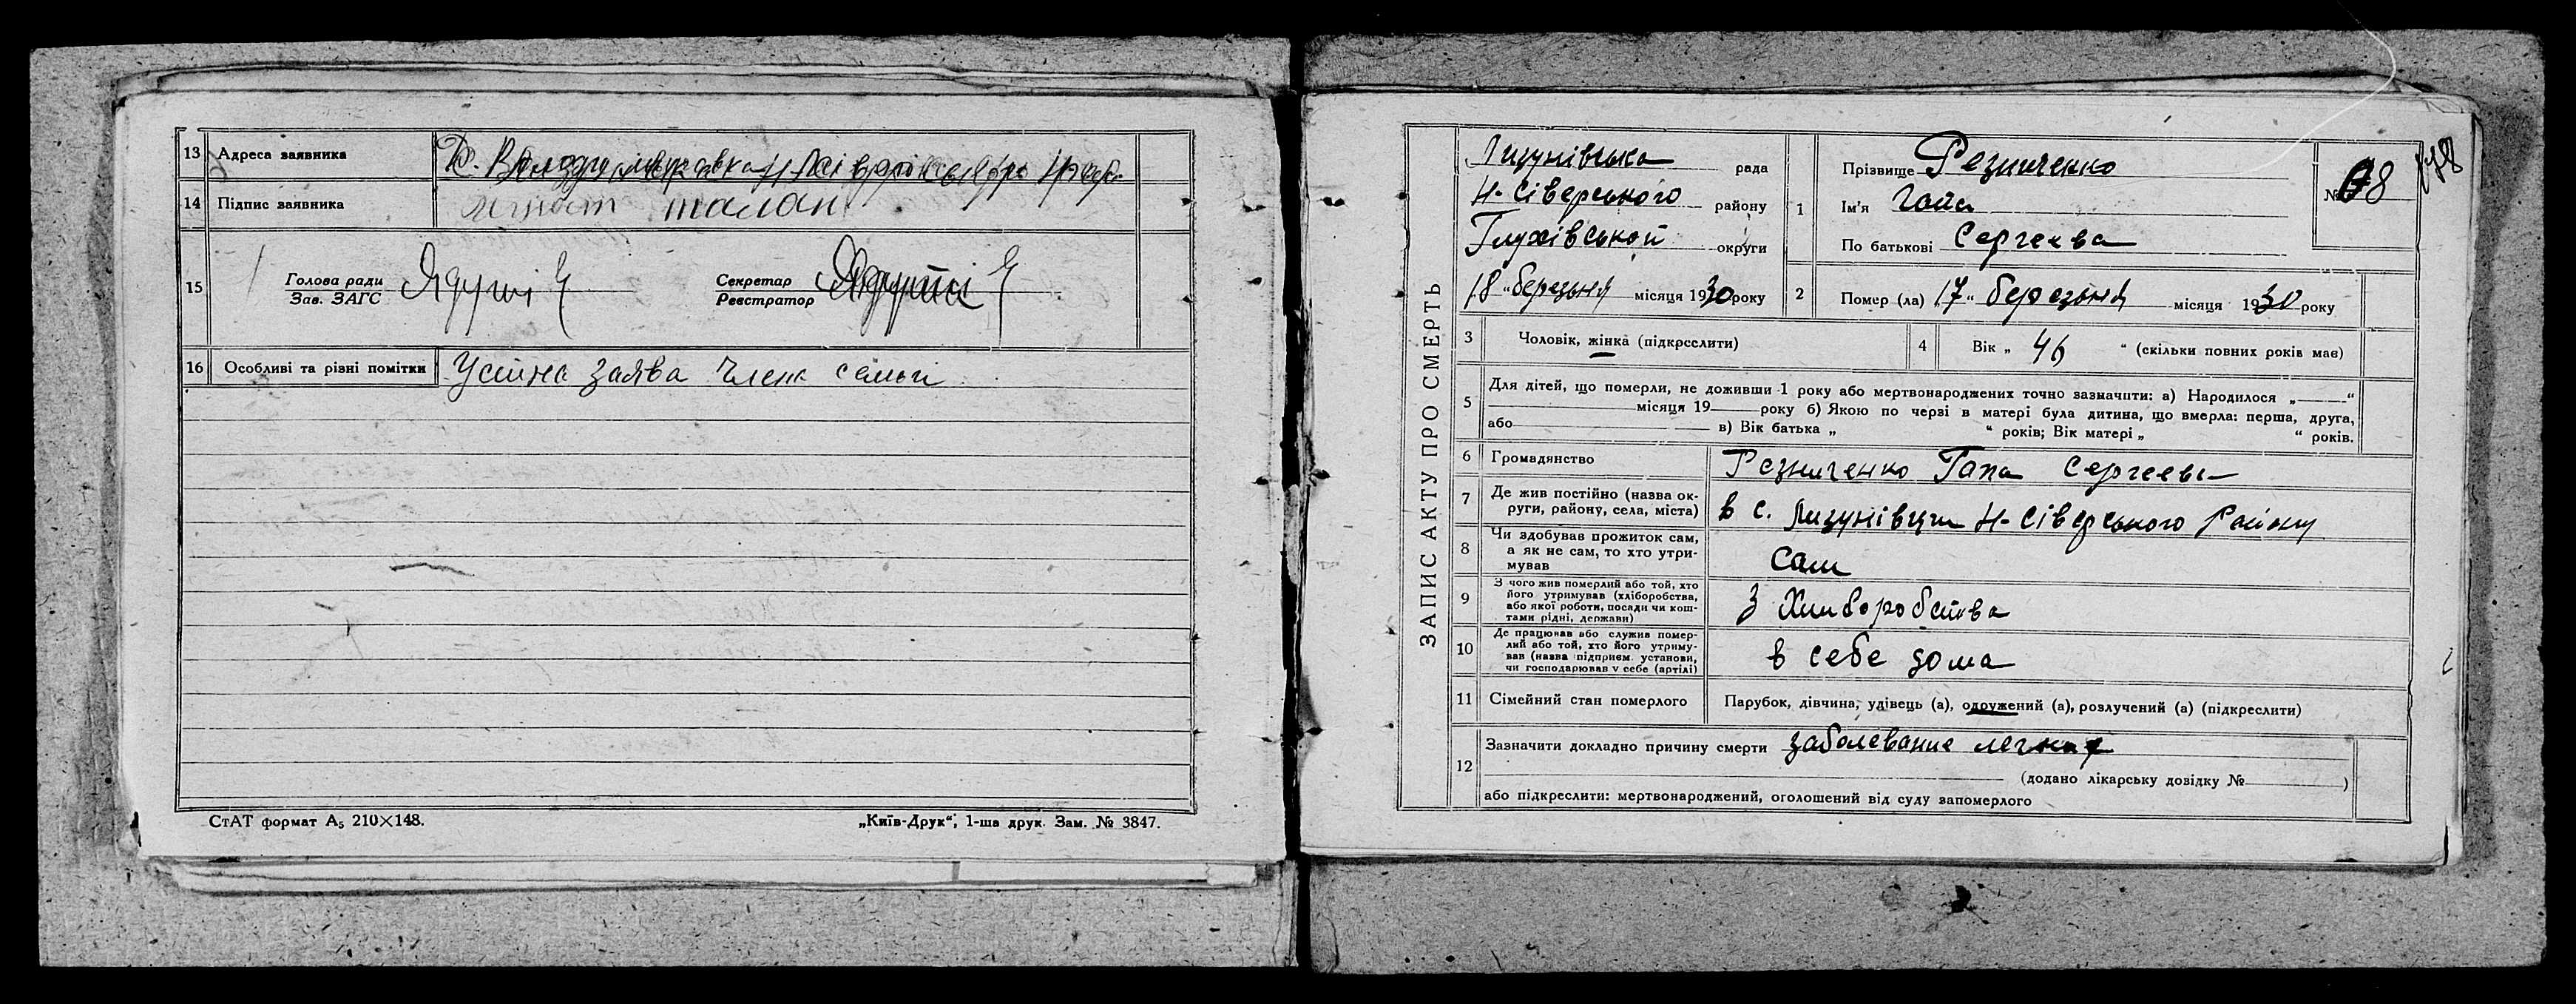 13 Адреса заявника
14 Підпис заявника талан
15 Голова ради
Зав. ЗАГС
Секретар
Реєстратор
16 Особливі та різні помітки Устна заява члена семьи
СтАТ формат А5 210×148.
„Київ-Друк“, 1-ша друк. Зам. № 3847.
ЗАПИС АКТУ ПРО СМЕРТЬ
Лизунівська рада
Н-Сіверського району
Глухівськой округи
18 „ березня місяця 1930 року
1 Прізвище Резниченко
Ім'я Гапа
По батькові Сергеева
№ 8
138
2 Помер (ла) 17 „ березня місяця 1930 року
3 Чоловік, жінка (підкреслити)
4 Вік „ 46 “ (скільки повних років мав)
5 Для дітей, що померли, не доживши 1 року або мертвонароджених точно зазначити: а) Народилося „ “
місяця 19 року б) Якою по черзі в матері була дитина, що вмерла: перша, друга,
або в) Вік батька „ “ років; Вік матері „ “ років.
6 Громадянство Резниченко Гапа Сергеева
7 Де жив постійно (назва ок-
руги, району, села, міста) в с. Лизунівци Н-Сіверського Району
8 Чи здобував прожиток сам,
а як не сам, то хто утри-
мував Сам
9 З чого жив померлий або той, хто
його утримував (хліборобства,
або якої роботи, посади чи кош-
тами рідні, держави) З Хлиборобства
10 Де працював або служив помер-
лий або той, хто його утриму-
вав (назва підприєм. установи,
чи господарював у себе (артілі) в себе дома
11 Сімейний стан померлого Парубок, дівчина, удівець (а), одружений (а), розлучений (а) (підкреслити)
12 Зазначити докладно причину смерти заболевание легких
(додано лікарську довідку № )
або підкреслити: мертвонароджений, оголошений від суду запомерлого